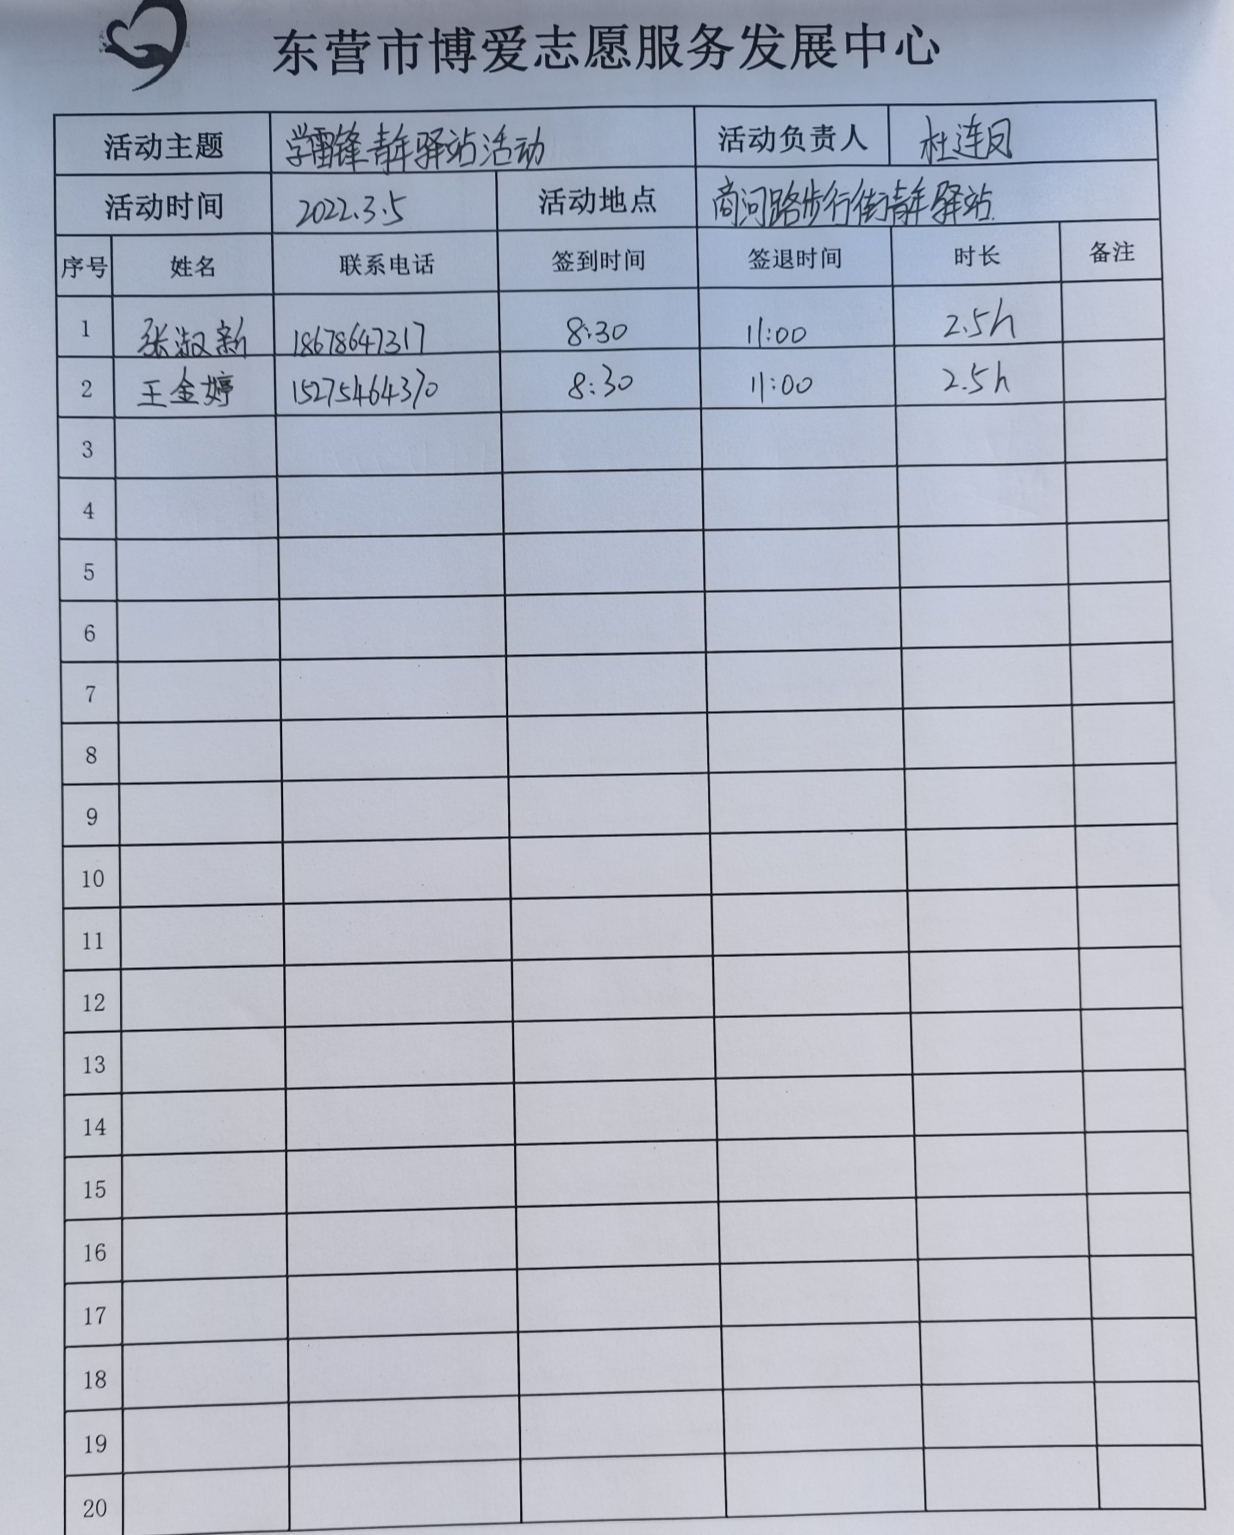 东营市博爱志愿服务发展中心
活动主题 学雷锋青年驿站活动 活动负责人 杜连凤
活动时间 2022.3.5 活动地点 商河路步行街青年驿站
序号 姓名 联系电话 签到时间 签退时间 时长 备注
1 张淑新 18678647317 8:30 11:00 2.5h
2 王金婷 15275464370 8:30 11:00 2.5h
3
4
5
6
7
8
9
10
11
12
13
14
15
16
17
18
19
20